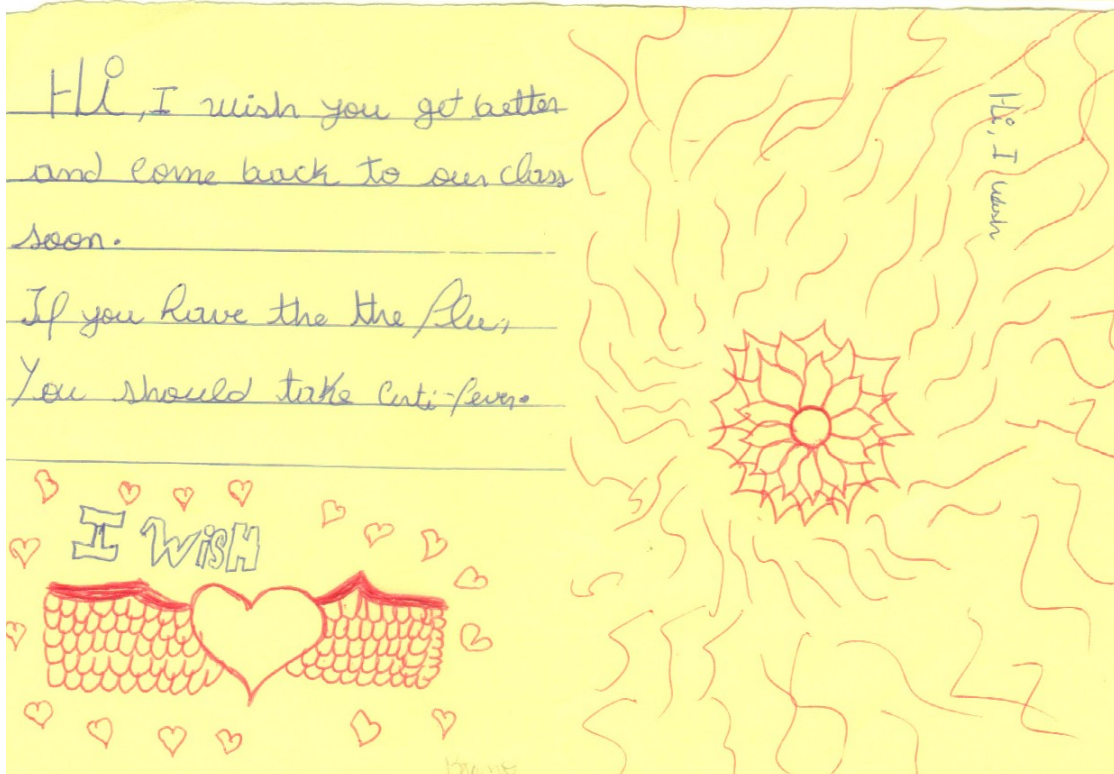 Hi, I wish you get better
and come back to our class
soon.
If you have the the flu,
You should take anti-fever.
I WiSH
Hi, I wish